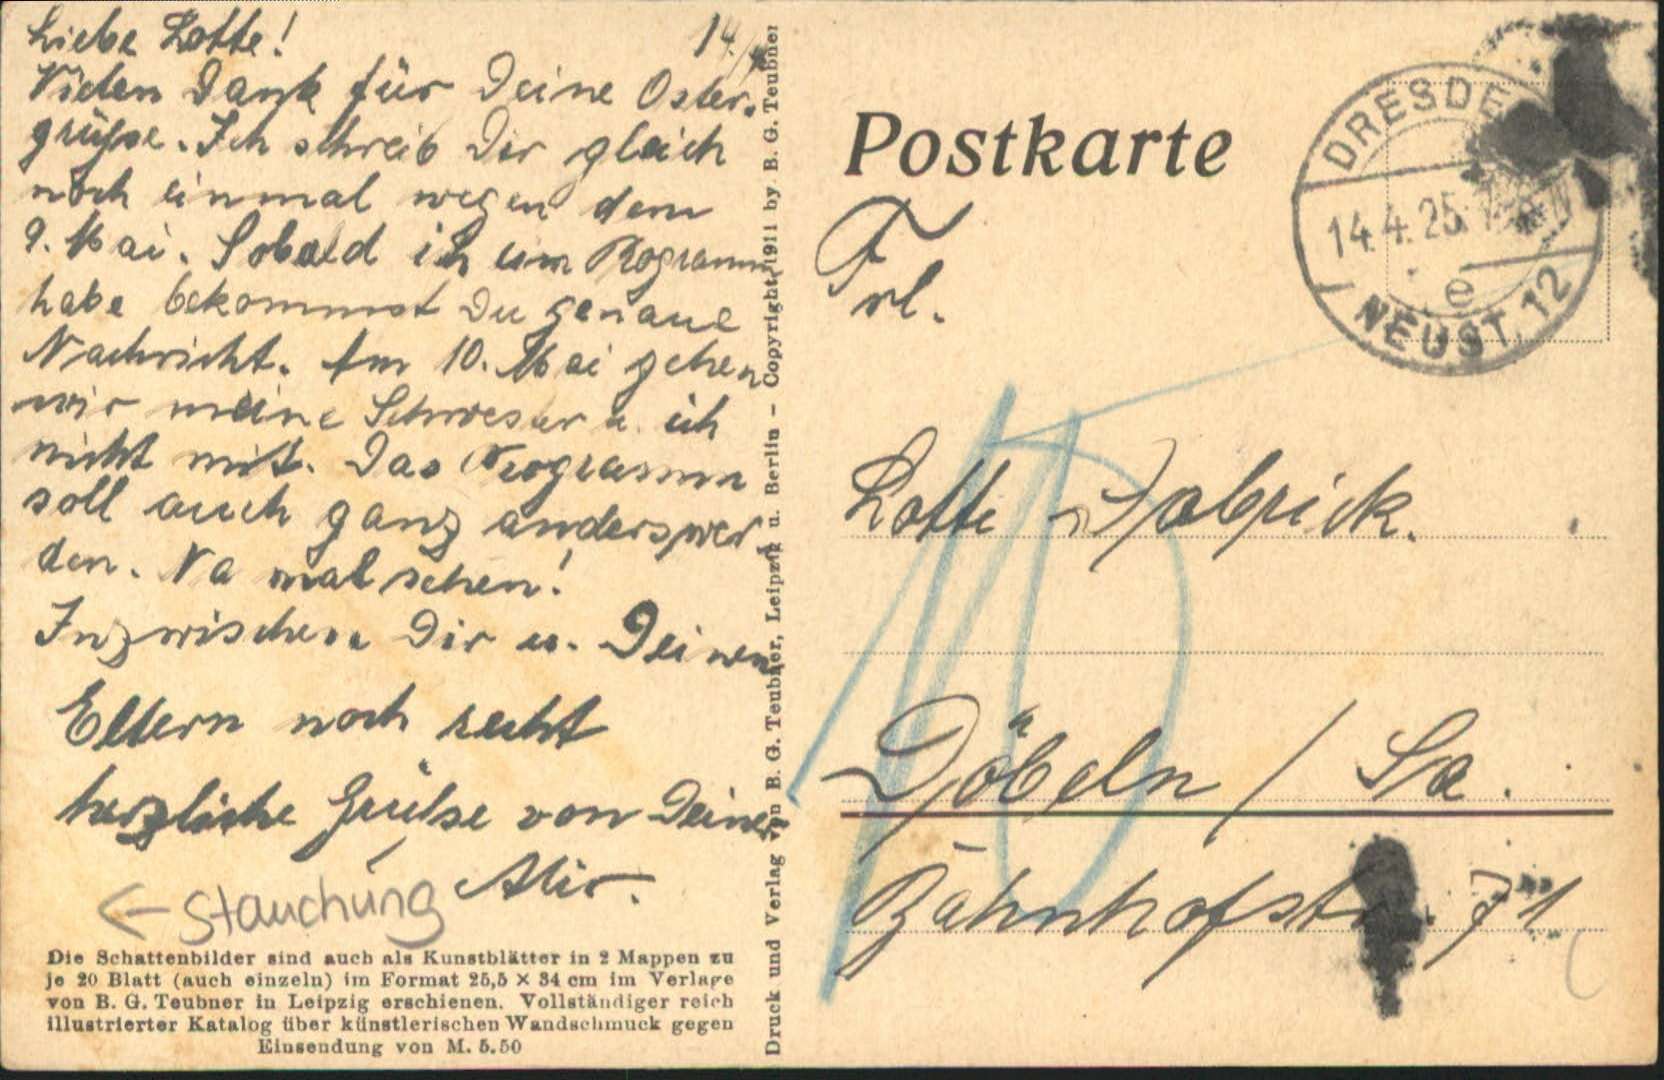 14.
Liebe Lotte!
Vielen Dank für Deine Oster-
grüsse. Ich schreib Dir gleich
noch einmal wegen dem
9. Mai. Sobald ich um Programm
habe bekommst Du genaue
Nachricht. Am 10. Mai gehen
wir meine Schwester u. ich
nicht mit. Das Programm
soll auch ganz anders wer-
den. Na mal sehen!
Inzwischen Dir u. Deinen
Eltern noch recht
herzliche Grüsse von Deiner
← Stauchung
Die Schattenbilder sind auch als Kunstblätter in 2 Mappen zu
je 20 Blatt (auch einzeln) im Format 25,5 × 34 cm im Verlage
von B. G. Teubner in Leipzig erschienen. Vollständiger reich
illustrierter Katalog über künstlerischen Wandschmuck gegen
Einsendung von M. 5.50
Druck und Verlag von B. G. Teubner, Leipzig u. Berlin – Copyright 1911 by B. G. Teubner
Postkarte
DRESDE
14.4.25.
e
NEUST. 12
Frl.
Lotte
Döbeln / Sa.
Bahnhofstr. 71